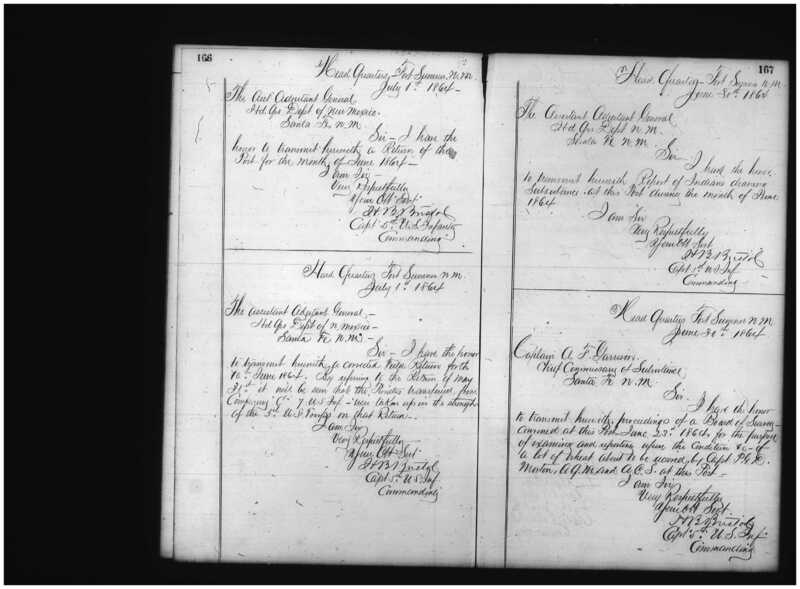 166
Head Quarters Fort Sumner N.M.
July 1st 1864
The Asst Adjutant General
Hd Qrs Dept of New Mexico.
Santa Fe N.M.
Sir - I have the
honor to transmit herewith a Return of the
Post for the month of June 1864 -
I am Sir -
Very Respectfully
Your Obt Servt
H B Bristol
Capt 5th U.S. Infantry
Commanding
Head Quarters Fort Sumner N.M.
July 1st 1864
The Assistant Adjutant General,
Hd Qrs Dept of N. Mexico -
Santa Fe N.M. -
Sir - I have the honor
to transmit herewith a corrected Return for the
June 1864. By refering to the Return of May
31st it will be seen that the transferred from
Company 7 U.S. Inf - were taken up in the strength
of the 5th U.S. Inf on that Return -
I am Sir
Very Respectfully
Your Obt Servt
H B Bristol
Capt 5th U.S. Inf
Commanding
167
Head Quarters Fort Sumner N.M.
June 30th 1864
The Assistant Adjutant General
Hd Qrs Dept N.M.
Santa Fe N.M.
Sir
I have the honor
to transmit herewith Report of Indians drawing
Subsistence at this Post during the month of June
1864
I am Sir
Very Respectfully
Your Obt Servt
H B Bristol
Capt 5th U.S. Inf
Commanding
Head Quarters Fort Sumner N.M.
June 30th 1864
Captain A. F. Garrison
Chief Commissary of Subsistence
Santa Fe N.M.
Sir.
I have the honor
to transmit herewith proceedings of a Board of Survey
convened at this Post June 23d 1864, for the purpose
of examining and reporting upon the Condition &c - of
a lot of wheat about to be received, by Capt
Morton, A.Q.M. and A.C.S. at this Post -
I am Sir
Very Respectfully
Your Obt Servt.
H B Bristol
Capt 5th U.S. Inf
Commanding